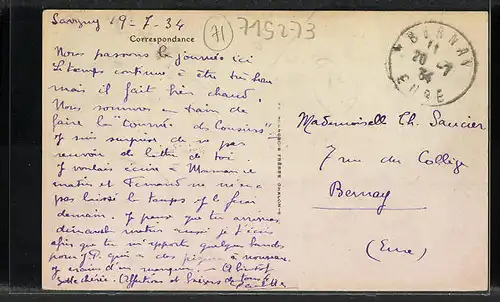 Savigny 19-7-34
71
715273
Correspondance
Nous passons la journée ici
Le temps continue à être très beau
mais il fait bien chaud.
Nous sommes en train de
faire la "tournée des Cousins"!
Je suis surprise de ne pas
recevoir de lettre de toi.
Je voulais écrire à Maman ce
matin et Fernand ne m'en a
pas laissé le temps je le ferai
demain. Je pense que tu arrives
dimanche matin aussi je t'écris
afin que tu m'apportes quelques
pour J.P. qui a des à nouveau.
Je crains d'en manquer. A bientôt
chérie. Affections et baisers de
BERNAY
11
20 -7
34
EURE
Mademoiselle Ch. Saucier
7 rue du Collège
Bernay
(Eure)